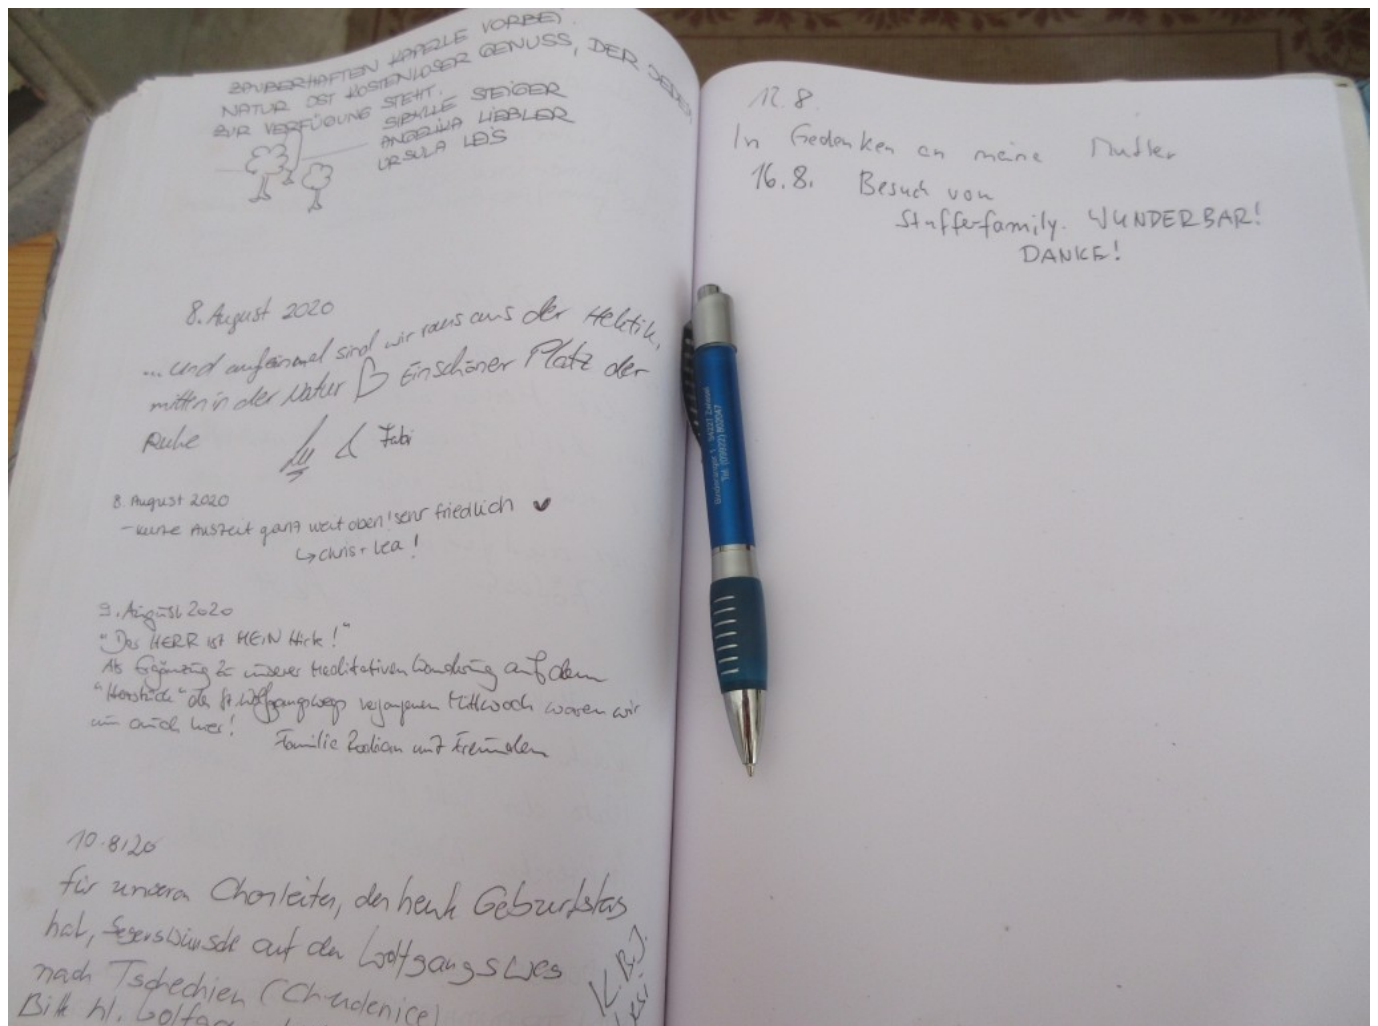 ZAUBERHAFTEN KAPELLE VORBEI.
NATUR IST KOSTENLOSER GENUSS, DER JEDEM
ZUR VERFÜGUNG STEHT.
SIBYLLE STEIGER
ANGELIKA LIEBLER
URSULA LEIS
8. August 2020
... und aufeinmal sind wir raus aus der Hektik,
mitten in der Natur Ein schöner Platz der
Ruhe
& Fabi
8. August 2020
- kurze Auszeit ganz weit oben! sehr friedlich
↳ Chris + Lea!
9. August 2020
"Der HERR ist MEIN Hirte!"
Als Ergänzung zu unserer meditativen Wanderung auf dem
"Herzstück" des St. Wolfgangswegs vergangenen Mittwoch waren wir
nun auch hier!
Familie mit Freunden
10.8.20
für unseren Chorleiter, der heute Geburtstag
hat, Segenswünsche auf dem Wolfgangsweg
nach Tschechien (Chudenice)
Bitte hl. Wolfgang
K.B.J.
12.8.
In Gedenken an meine Mutter
16.8. Besuch von
family. WUNDERBAR!
DANKE!
94227 Zwiesel
Tel. (09922) 802047